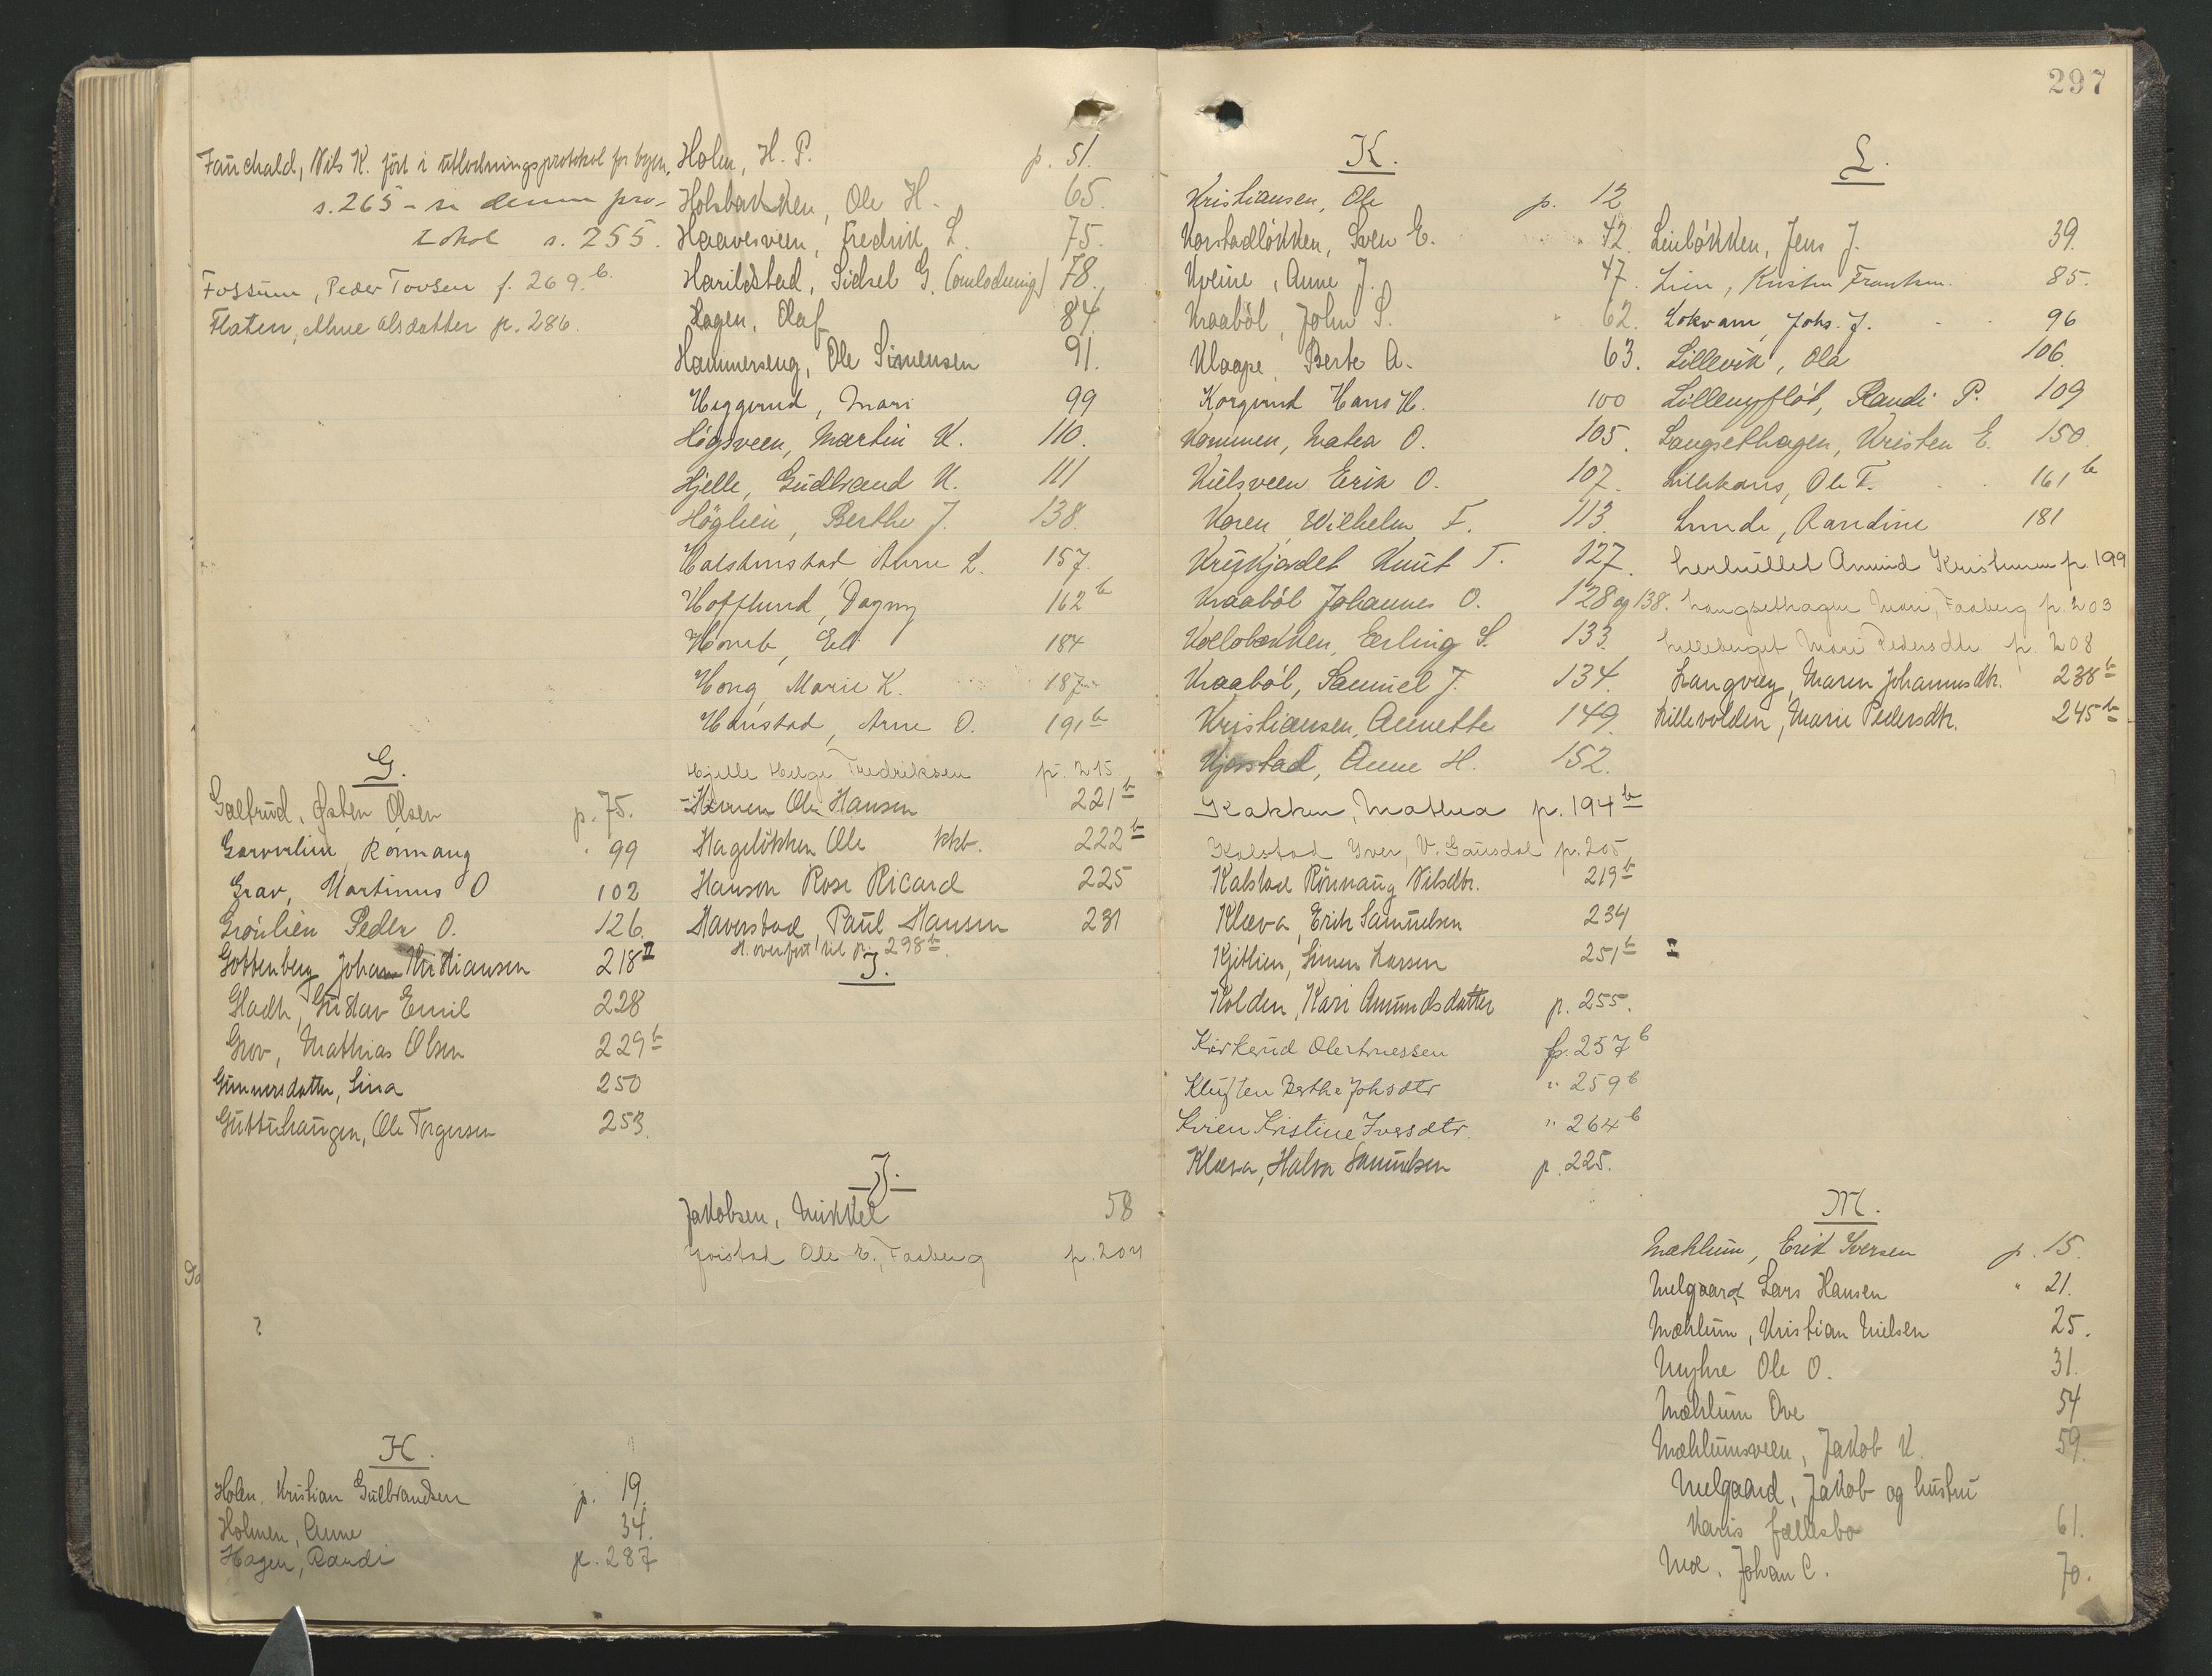 297
Fauchald, Nils K. ført i utlodningsprotokol for byen,
s. 265 - se denne pro-
tokol s. 255.
Fossum, Peder Tovsen f. 269.b
Flaten, Anne Olsdatter p. 286.
G.
Galtrud, Østen Olsen p. 75.
Garverlien, Rønnaug " 99
Grav, Martinus O 102
Grönlien Peder O. 126.
Gottenberg Johan Kristiansen 218 II
Gladh, Gustav Emil 228
Grov, Mathias Olsen 229 b
Gunnersdatter, Lina 250
Guttuhaugen, Ole Torgersen 253.
H.
Holm, Kristian Gulbrandsen p. 19.
Holmen, Anne 34.
Hagen, Randi p. 287
Holm, H. P. p. 51.
Holsbakken, Ole H. 65.
Haavesveen, Fredrik L. 75.
Harildstad, Sidsel G. (omlodning) 78.
Hagen, Olaf 84.
Hammerseng, Ole Simensen 91.
Heggerud, Mari 99
Högsveen, Martin K. 110.
Hjelle, Gudbrand K. 111
Höglien, Berthe J. 138.
Halstenstad Anne L. 157.
Hofflund, Dagny 162 b
Homb, Ell 184
Hong, Marie K. 187
Hanstad, Arne O. 191 b
Hjelle Helge Fredriksen p. 215
Ole Hansen 221 b
Hageløkken Ole kkb. 222 b
Hanson Rose Ricard 225
Haverstad, Paul Hansen 231
H. overført til p. 298 b.
I.
J.
Jakobsen, Mikkel 58
Jorstad Ole E., Faaberg p. 204
K.
Kristiansen, Ole p. 12
Korstadløkken, Sven E. 42.
Kveine, Anne J. 47.
Kraaböl, John S. 62.
Klaape, Berte A. 63.
Korgerud Hans H. 100
Kommen, Matea O. 105.
Kulsveen Erik O. 107.
Koren, Wilhelm F. 113.
Knut T. 127.
Kraaböl Johannes O. 128 og 138.
Kollobekken, Erling S. 133.
Kraaböl, Samuel J. 134.
Kristiansen, Annette 149.
Kjorstad, Anne H. 152.
Kakken, Mathea p. 194 b
Kalstad Iver, V. Gausdal p. 205
Kalstad Rönnaug Nilsdtr. 219 b
Klæva, Erik Samuelsen 234
Kjitlien, Simen Larsen 251 b I
Kolden, Kari Amundsdatter p. 255.
Kirkerud Ole p. 257 b
Kluften Berthe Johsdtr " 259 b
Kvien Kristine Iversdtr. " 264 b
Klæva, Halvor Samuelsen p. 225.
L.
Leinlökken, Jens J. 39.
Lien, Kristen Frantsen. 85.
Lokvam, Johs. J. 96
Lillevik, Ola 106.
Randi P. 109
Langsethagen, Kristen E. 150.
Ole T. 161 b
Lunde, Randine 181
Amund Kristensen p. 199
Langsethagen Mari, Faaberg p. 203
Lilleberget Mari Pedersdtr p. 208
Langvey, Maren Johannesdtr. 238 b
Lillevolden, Marie Pedersdtr. 245 b
M.
Mæhlum, Erik Iversen p. 15.
Melgaard Lars Hansen " 21.
Mæhlum, Kristian Nielsen 25.
Myhre Ole O. 31.
Mæhlum Ove 54
Mæhlumsveen, Jakob K. 59.
Melgaard, Jakob og hustru
Karis fællesbo 61.
Moe, Johan C. 70.